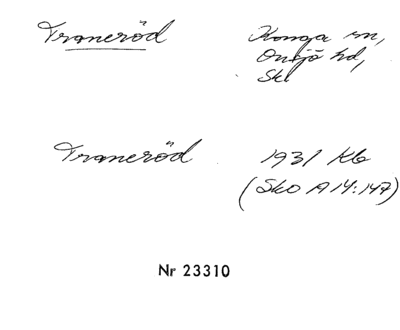 Traneröd Konga sn,
Onsjö hd,
Skl
Traneröd 1931 Kb
(Sko A14:147)
Nr 23310